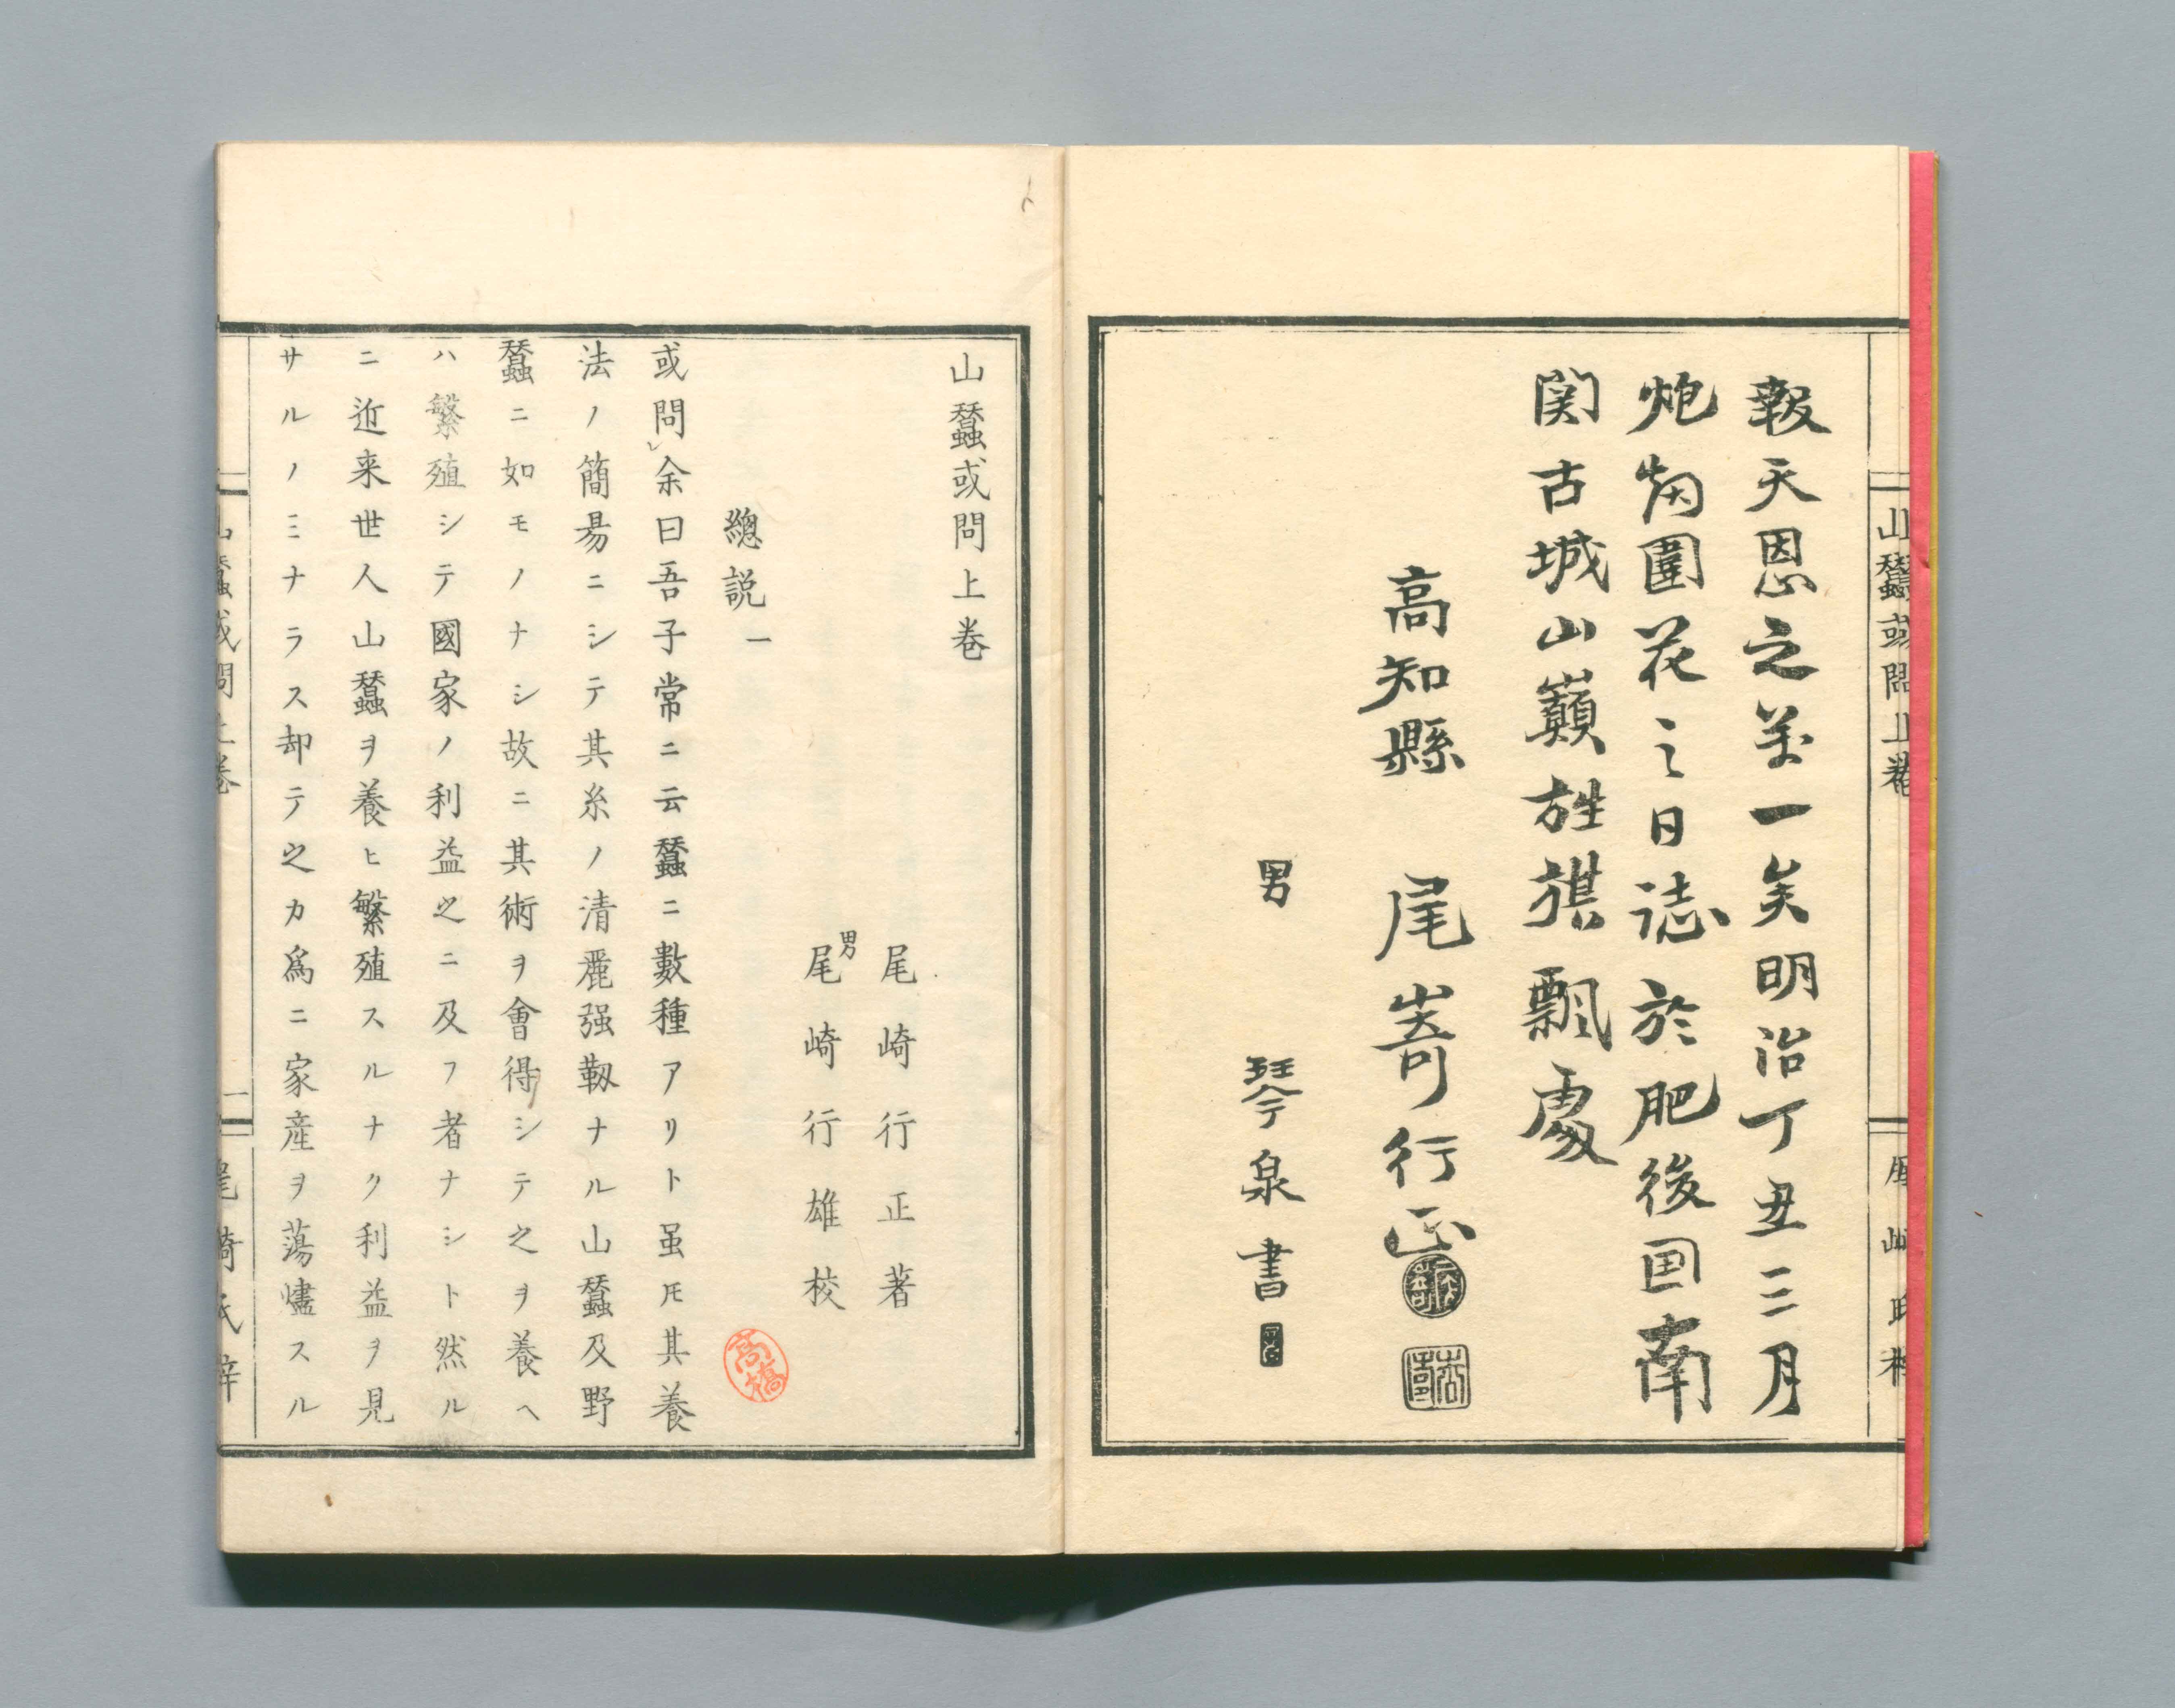 山蠶或問上卷
報天恩之萬一矣明治丁丑三月
炮焔圍花之日誌於肥後国南
関古城山巓旌旗飄處
高知縣 尾嵜行正
男 琴泉書
山蠶或問上卷
尾崎行正著
男 尾崎行雄校
總説一
或問余曰吾子常ニ云蠶ニ數種アリト虽モ其養
法ノ簡昜ニシテ其糸ノ清麗强靱ナル山蠶及野
蠶ニ如モノナシ故ニ其術ヲ會得シテ之ヲ養ヘ
ハ繁殖シテ國家ノ利益之ニ及フ者ナシト然ル
ニ近来世人山蠶ヲ養ヒ繁殖スルナク利益ヲ見
サルノミナラス却テ之カ爲ニ家産ヲ蕩燼スル
山蠶或問上卷
高橋